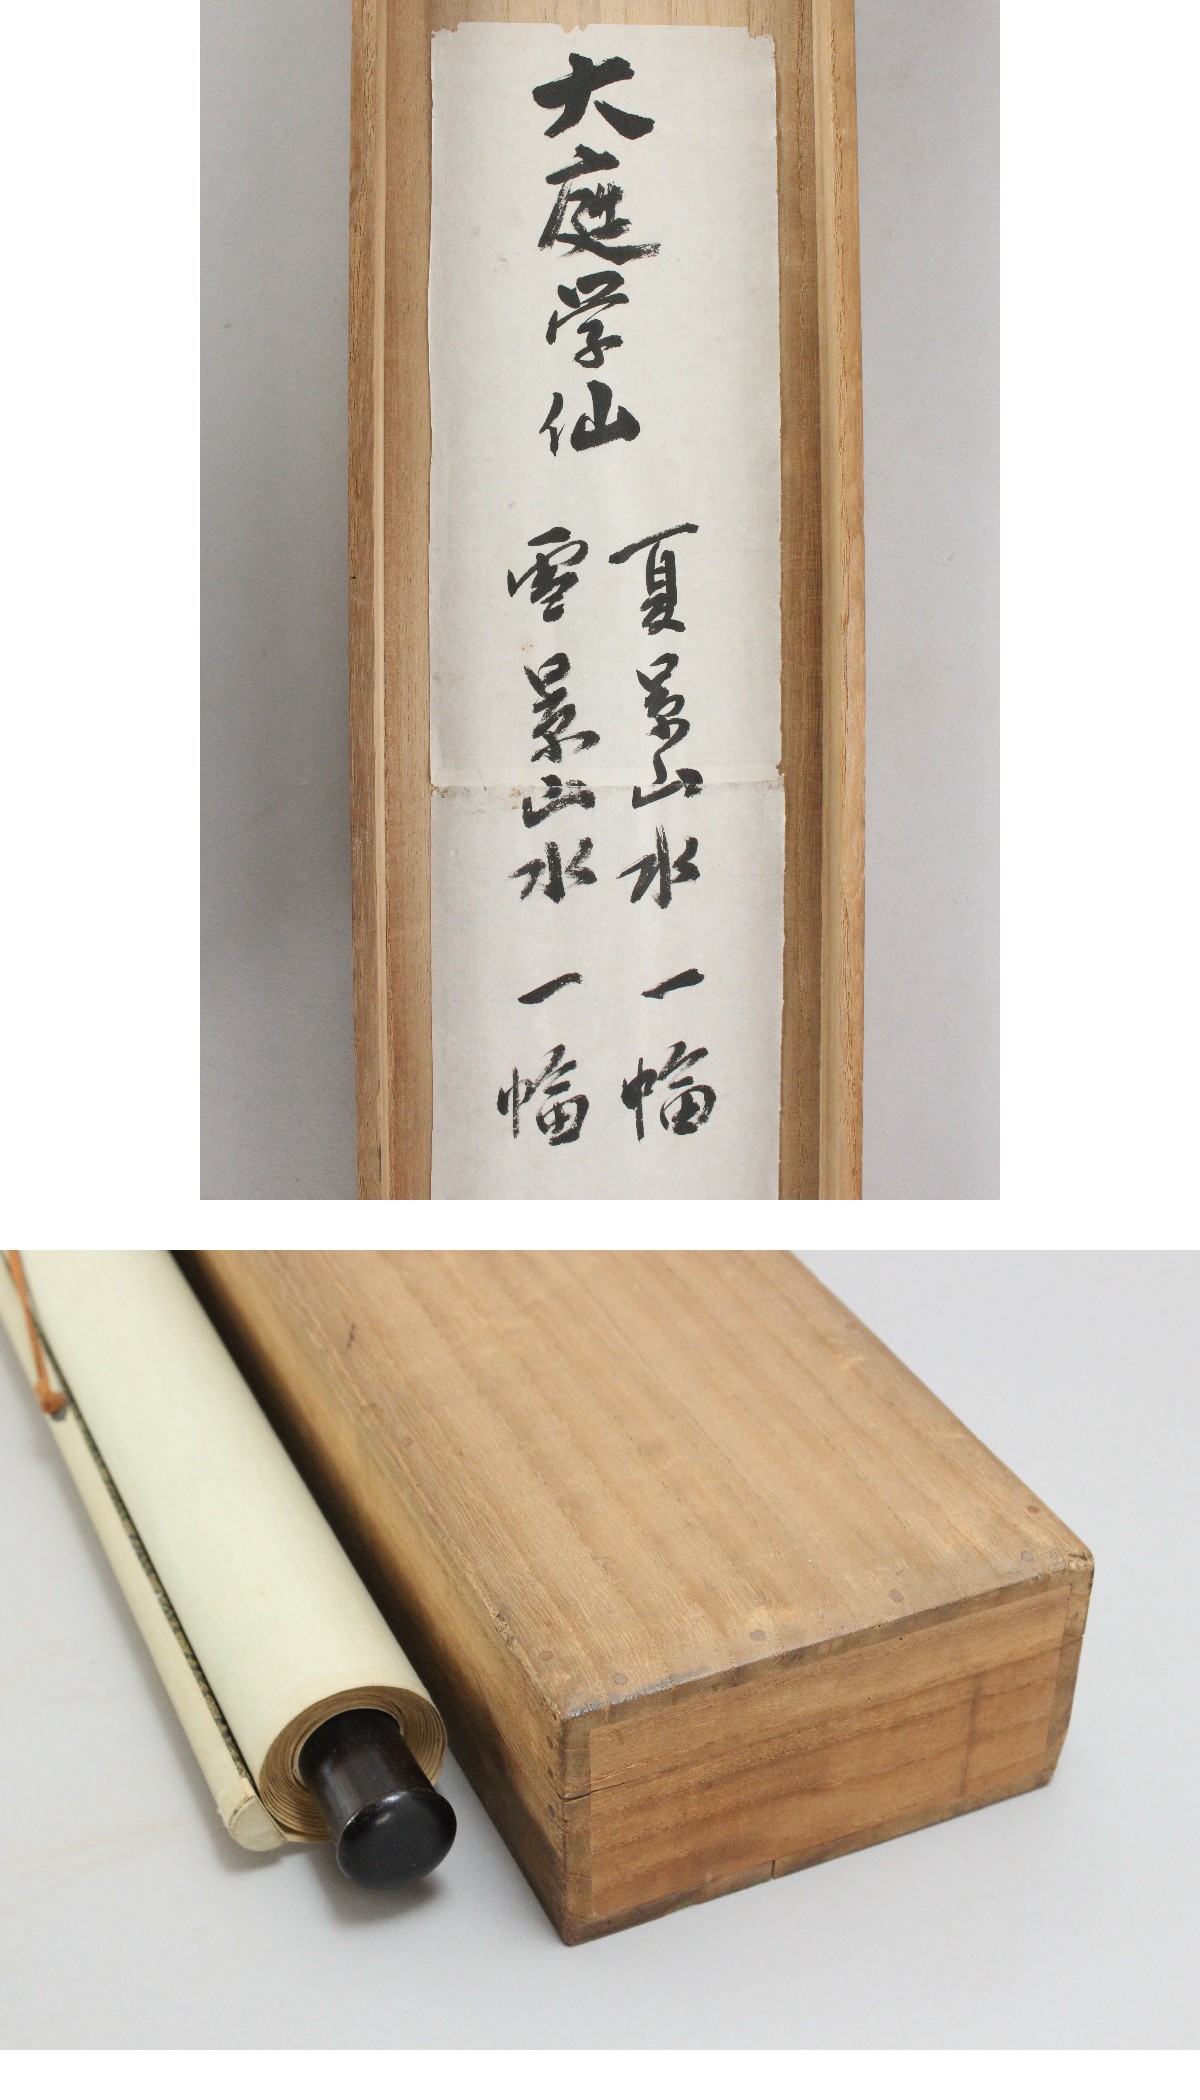 大庭学仙
夏景山水 一幅
雪景山水 一幅